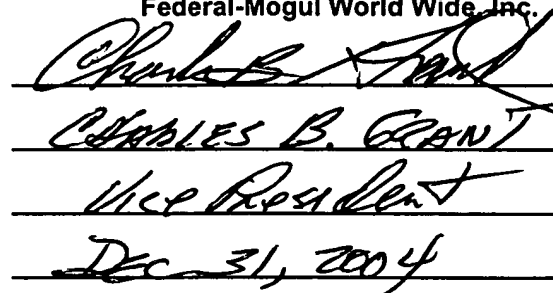 Federal-Mogul World Wide, Inc.
Charles B Grant
CHARLES B. GRANT
Vice President
DEC 31, 2004